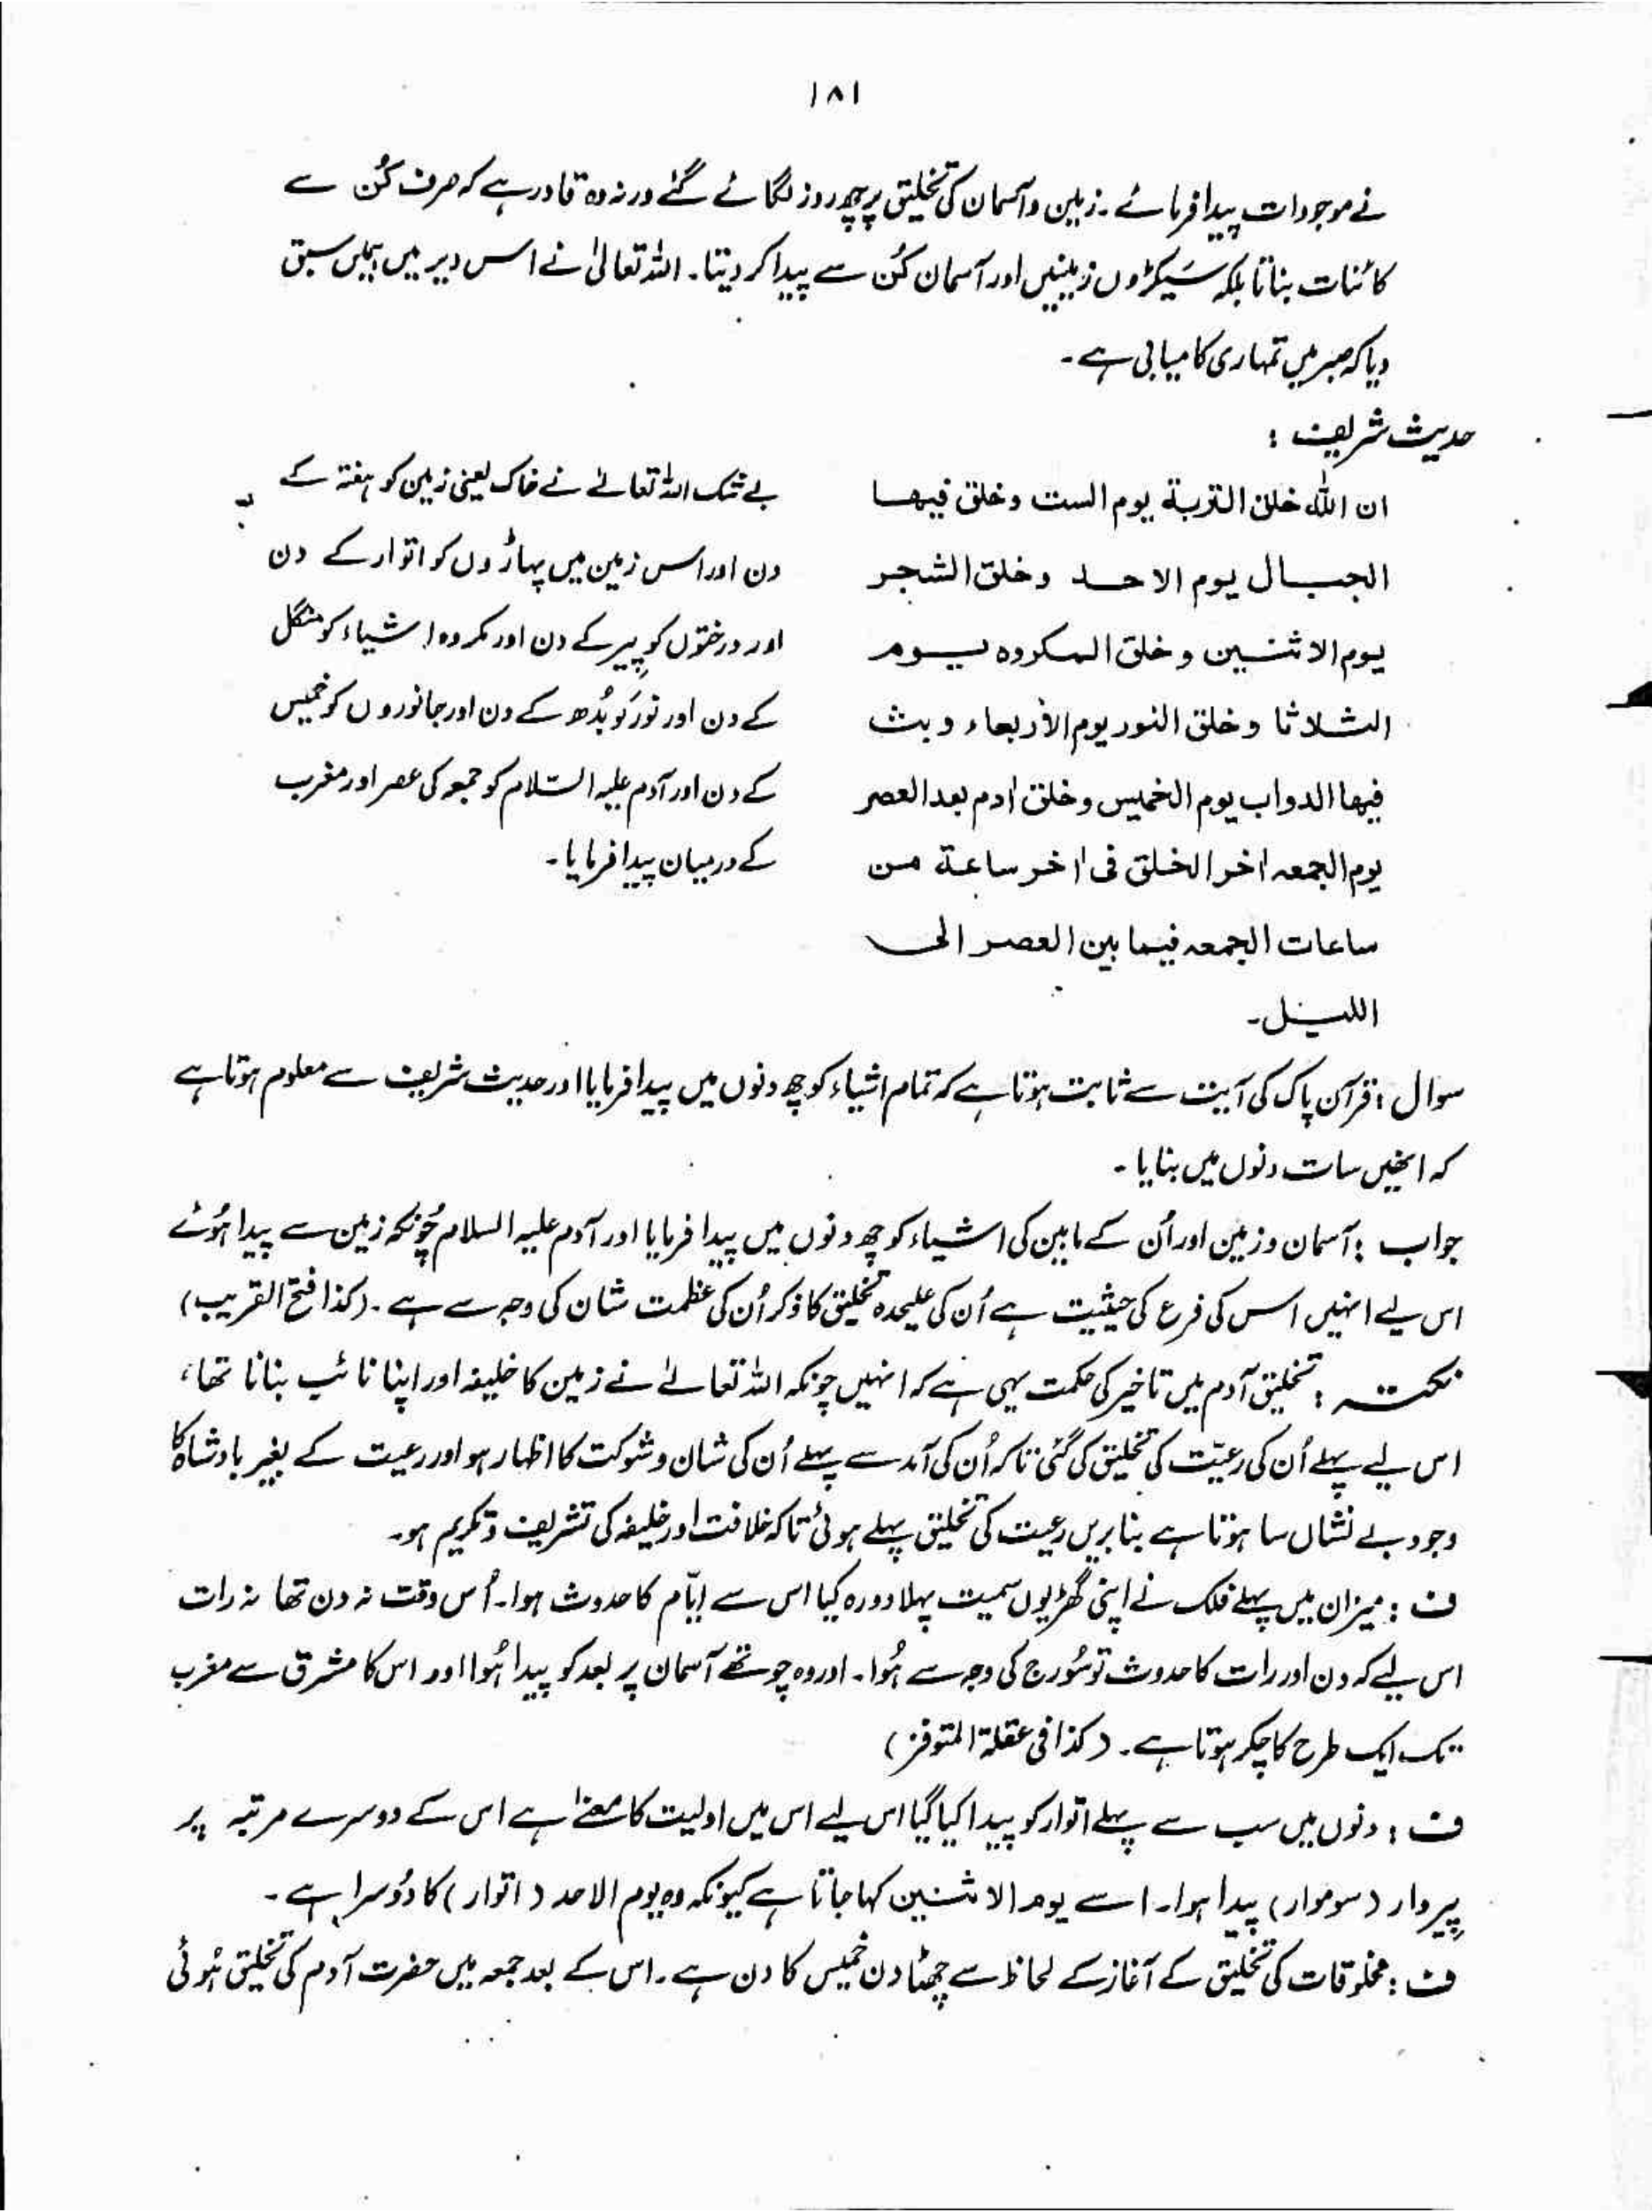 ۱۸۱
نے موجودات پیدا فرمائے ۔ زمین و آسمان کی تخلیق پر چھ روز لگائے گئے ورنہ وہ قادر ہے کہ صرف کُن سے
کائنات بناتا بلکہ سَیکڑوں زمینیں اور آسمان کُن سے پیدا کر دیتا ۔ اللہ تعالیٰ نے اس دیر میں ہمیں سبق
دیا کہ صبر میں تمہاری کامیابی ہے ۔
حدیث شریف :
ان اللہ خلق التربة یوم الست وخلق فیھا
الجبال یوم الاحد وخلق الشجر
یوم الاثنین وخلق المکروہ یوم
الثلاثا وخلق النور یوم الاربعاء وبث
فیھا الدواب یوم الخمیس وخلق اٰدم بعد العصر
یوم الجمعہ اٰخر الخلق فی اٰخر ساعة من
ساعات الجمعہ فیما بین العصر الی
اللیل ۔
بے شک اللہ تعالےٰ نے خاک یعنی زمین کو ہفتہ کے
دن اور اس زمین میں پہاڑوں کو اتوار کے دن
اور درختوں کو پیر کے دن اور مکروہ اشیاء کو منگل
کے دن اور نور کو بُدھ کے دن اور جانوروں کو خمیس
کے دن اور آدم علیہ السّلام کو جمعہ کی عصر اور مغرب
کے درمیان پیدا فرمایا ۔
سوال : قرآن پاک کی آیت سے ثابت ہوتا ہے کہ تمام اشیاء کو چھ دنوں میں پیدا فرمایا اور حدیث شریف سے معلوم ہوتا ہے
کہ انھیں سات دنوں میں بنایا ۔
جواب : آسمان و زمین اور اُن کے مابین کی اشیاء کو چھ دنوں میں پیدا فرمایا اور آدم علیہ السلام چُونکہ زمین سے پیدا ہُوئے
اس لیے انہیں اس کی فرع کی حیثیت ہے اُن کی علیحدہ تخلیق کا ذکر اُن کی عظمت شان کی وجہ سے ہے ۔ (کذا فتح القریب)
نکتہ : تخلیق آدم میں تاخیر کی حکمت یہی ہے کہ انہیں چونکہ اللہ تعالےٰ نے زمین کا خلیفہ اور اپنا نائب بنانا تھا ،
اس لیے پہلے اُن کی رعیّت کی تخلیق کی گئی تاکہ اُن کی آمد سے پہلے اُن کی شان و شوکت کا اظہار ہو اور رعیت کے بغیر بادشاہ کا
وجود بے نشاں سا ہوتا ہے بنا بریں رعیت کی تخلیق پہلے ہوئی تاکہ خلافت اور خلیفہ کی تشریف و تکریم ہو۔
ف : میزان میں پہلے فلک نے اپنی گھڑیوں سمیت پہلا دورہ کیا اس سے ایّام کا حدوث ہوا۔ اُس وقت نہ دن تھا نہ رات
اس لیے کہ دن اور رات کا حدوث تو سُورج کی وجہ سے ہُوا۔ اور وہ چوتھے آسمان پر بعد کو پیدا ہُوا اور اس کا مشرق سے مغرب
تک ایک طرح کا چکر ہوتا ہے ۔ (کذا فی عقلۃ المتوفز)
ف : دنوں میں سب سے پہلے اتوار کو پیدا کیا گیا اس لیے اس میں اولیت کا معنےٰ ہے اس کے دوسرے مرتبہ پر
پیروار (سوموار) پیدا ہوا۔ اسے یوم الاثنین کہا جاتا ہے کیونکہ وہ یوم الاحد (اتوار) کا دُوسرا ہے ۔
ف : مخلوقات کی تخلیق کے آغاز کے لحاظ سے چھٹا دن خمیس کا دن ہے ۔ اس کے بعد جمعہ میں حضرت آدم کی تخلیق ہُوئی